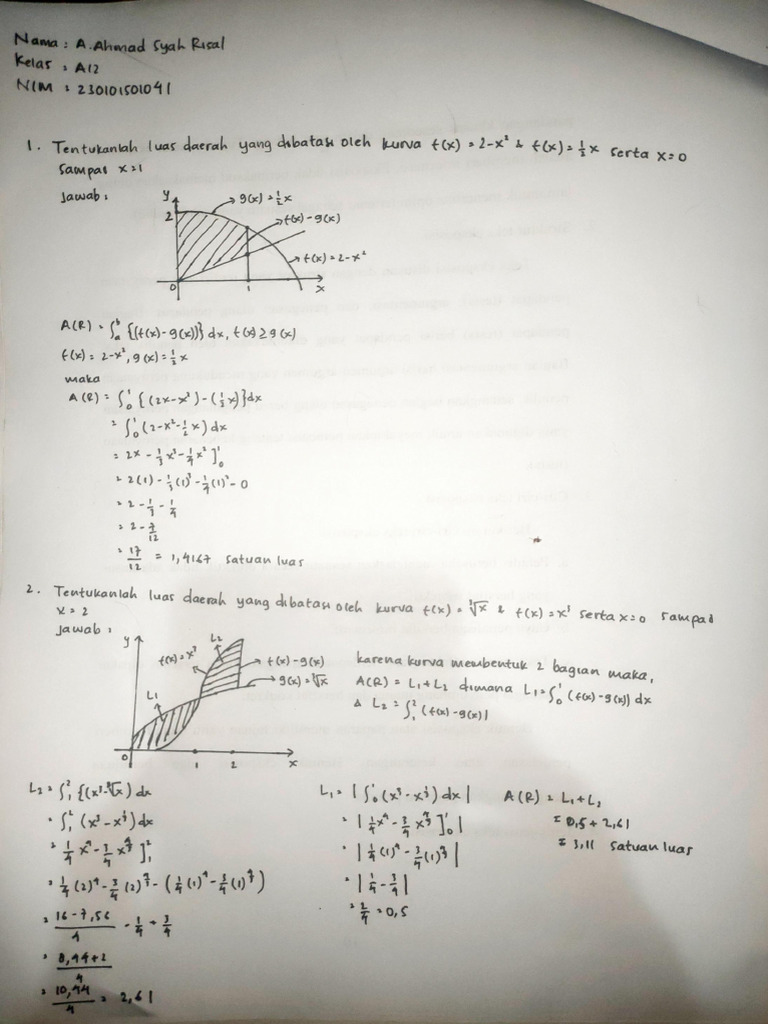 Nama : A. Ahmad Syah Risal
Kelas : A12
NIM : 230101501041
1. Tentukanlah luas daerah yang dibatasi oleh kurva f(x) = 2-x² & f(x) = ½x serta x=0
sampai x=1
Jawab :
y
2
g(x) = ½x
f(x) - g(x)
f(x) = 2-x²
0
1
x
A(R) = ∫ₐᵇ {(f(x) - g(x))} dx, f(x) ≥ g(x)
f(x) = 2-x², g(x) = ½x
maka
A(R) = ∫₀¹ {(2x-x²) - (½x)} dx
= ∫₀¹ (2-x²-½x) dx
= 2x - ⅓x³ - ¼x² ]₀¹
= 2(1) - ⅓(1)³ - ¼(1)² - 0
= 2 - ⅓ - ¼
= 2 - 7/12
= 17/12 = 1,4167 satuan luas
2. Tentukanlah luas daerah yang dibatasi oleh kurva f(x) = ∛x & f(x) = x³ serta x=0 sampai
x = 2
Jawab :
y
L2
f(x) = x³
f(x) - g(x)
g(x) = ∛x
L1
0
1
2
x
karena kurva membentuk 2 bagian maka,
A(R) = L1 + L2 dimana L1 = ∫₀¹ (f(x) - g(x)) dx
& L2 = ∫₁² (f(x) - g(x)|
L2 = ∫₁² {(x³-∛x) dx
= ∫₁² (x³ - x^⅓) dx
= ¼x⁴ - ¾x^4/3 ]₁²
= ¼(2)⁴ - ¾(2)^4/3 - (¼(1)⁴ - ¾(1)^4/3)
= (16 - 7,56)/4 - ¼ + ¾
= (8,44 + 2)/4
= 10,44/4 = 2,61
L1 = | ∫₀¹ (x³ - x^⅓) dx |
= | ¼x⁴ - ¾x^4/3 ]₀¹ |
= | ¼(1)⁴ - ¾(1)^4/3 |
= | ¼ - ¾ |
= 2/4 = 0,5
A(R) = L1 + L2
= 0,5 + 2,61
= 3,11 satuan luas